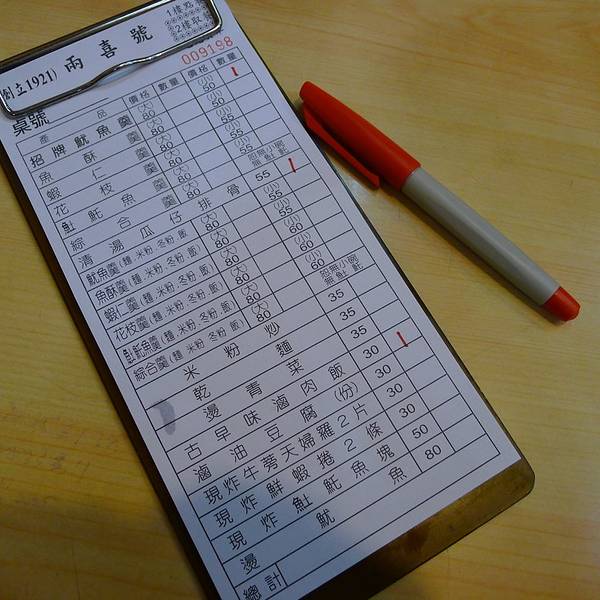 創立1921) 兩喜號 1樓點
2樓取
009198
桌號
產品 價格 數量 價格 數量
招牌魷魚羹 (大)80 (小)50 1
魚酥羹 (大)80 (小)50
蝦仁羹 (大)80 (小)55
花枝羹 (大)80 (小)55
𩵚魠魚羹 (大)80
綜合羹 (大)80 因無小碗無𩵚魠
清湯瓜仔排骨 55 1
魷魚羹(麵.米粉.冬粉.飯) (大)80 (小)55
魚酥羹(麵.米粉.冬粉.飯) (大)80 (小)55
蝦仁羹(麵.米粉.冬粉.飯) (大)80 (小)60
花枝羹(麵.米粉.冬粉.飯) (大)80 (小)60
𩵚魠魚羹(麵 米粉.冬粉.飯) (大)80
綜合羹(麵 米粉 冬粉 飯) (大)80 因無小碗無𩵚魠
米粉炒 35
乾麵 35
燙青菜 30
古早味滷肉飯 30 1
滷油豆腐(份) 30
現炸牛蒡天婦羅2片 30
現炸鮮蝦捲2條 50
現炸𩵚魠魚塊 80
燙魷魚
總計